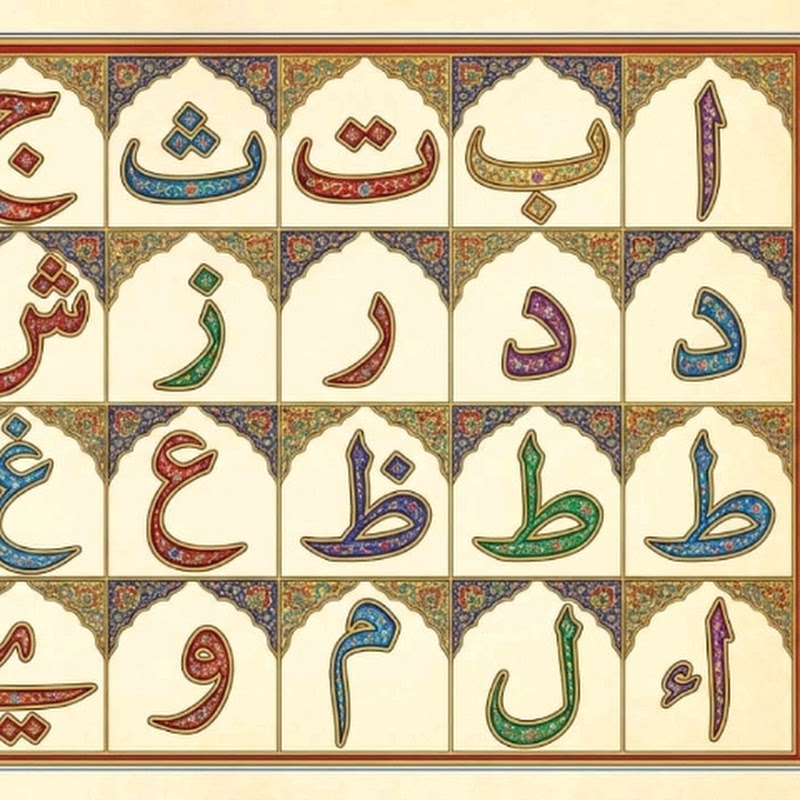 ا ب ت ث ج
د د ر ز ش
ط ط ظ ع غ
اء ل م و